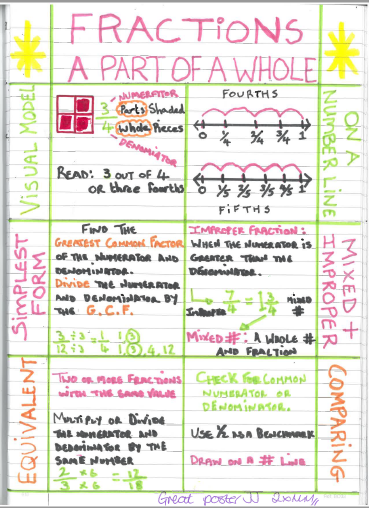 FRACTIONS
A PART OF A WHOLE
VISUAL MODEL
NUMERATOR
3/4 Parts Shaded
Whole Pieces
DENOMINATOR
READ: 3 OUT OF 4
OR three fourths
FOURTHS
0 1/4 2/4 3/4 1
0 1/5 2/5 3/5 4/5 1
FIFTHS
ON A
NUMBER LINE
SIMPLEST
FORM
FIND THE
GREATEST COMMON FACTOR
OF THE NUMERATOR AND
DENOMINATOR.
DIVIDE THE NUMERATOR
AND DENOMINATOR BY
THE G.C.F.
3 ÷3 = 1 1,3
12 ÷3 4 1,3,4,12
IMPROPER FRACTION:
WHEN THE NUMERATOR IS
GREATER THAN THE
DENOMINATOR.
7/4 = 1 3/4 MIXED #
IMPROPER
MIXED #: A WHOLE #
AND FRACTION
MIXED +
IMPROPER
EQUIVALENT
TWO OR MORE FRACTIONS
WITH THE SAME VALUE
MULTIPLY OR DIVIDE
THE NUMERATOR AND
DENOMINATOR BY THE
SAME NUMBER
2 x6 = 12
3 x6 18
CHECK FOR COMMON
NUMERATOR OR
DENOMINATOR.
USE 1/2 AS A BENCHMARK
DRAW ON A # LINE
COMPARING
Great poster JJ